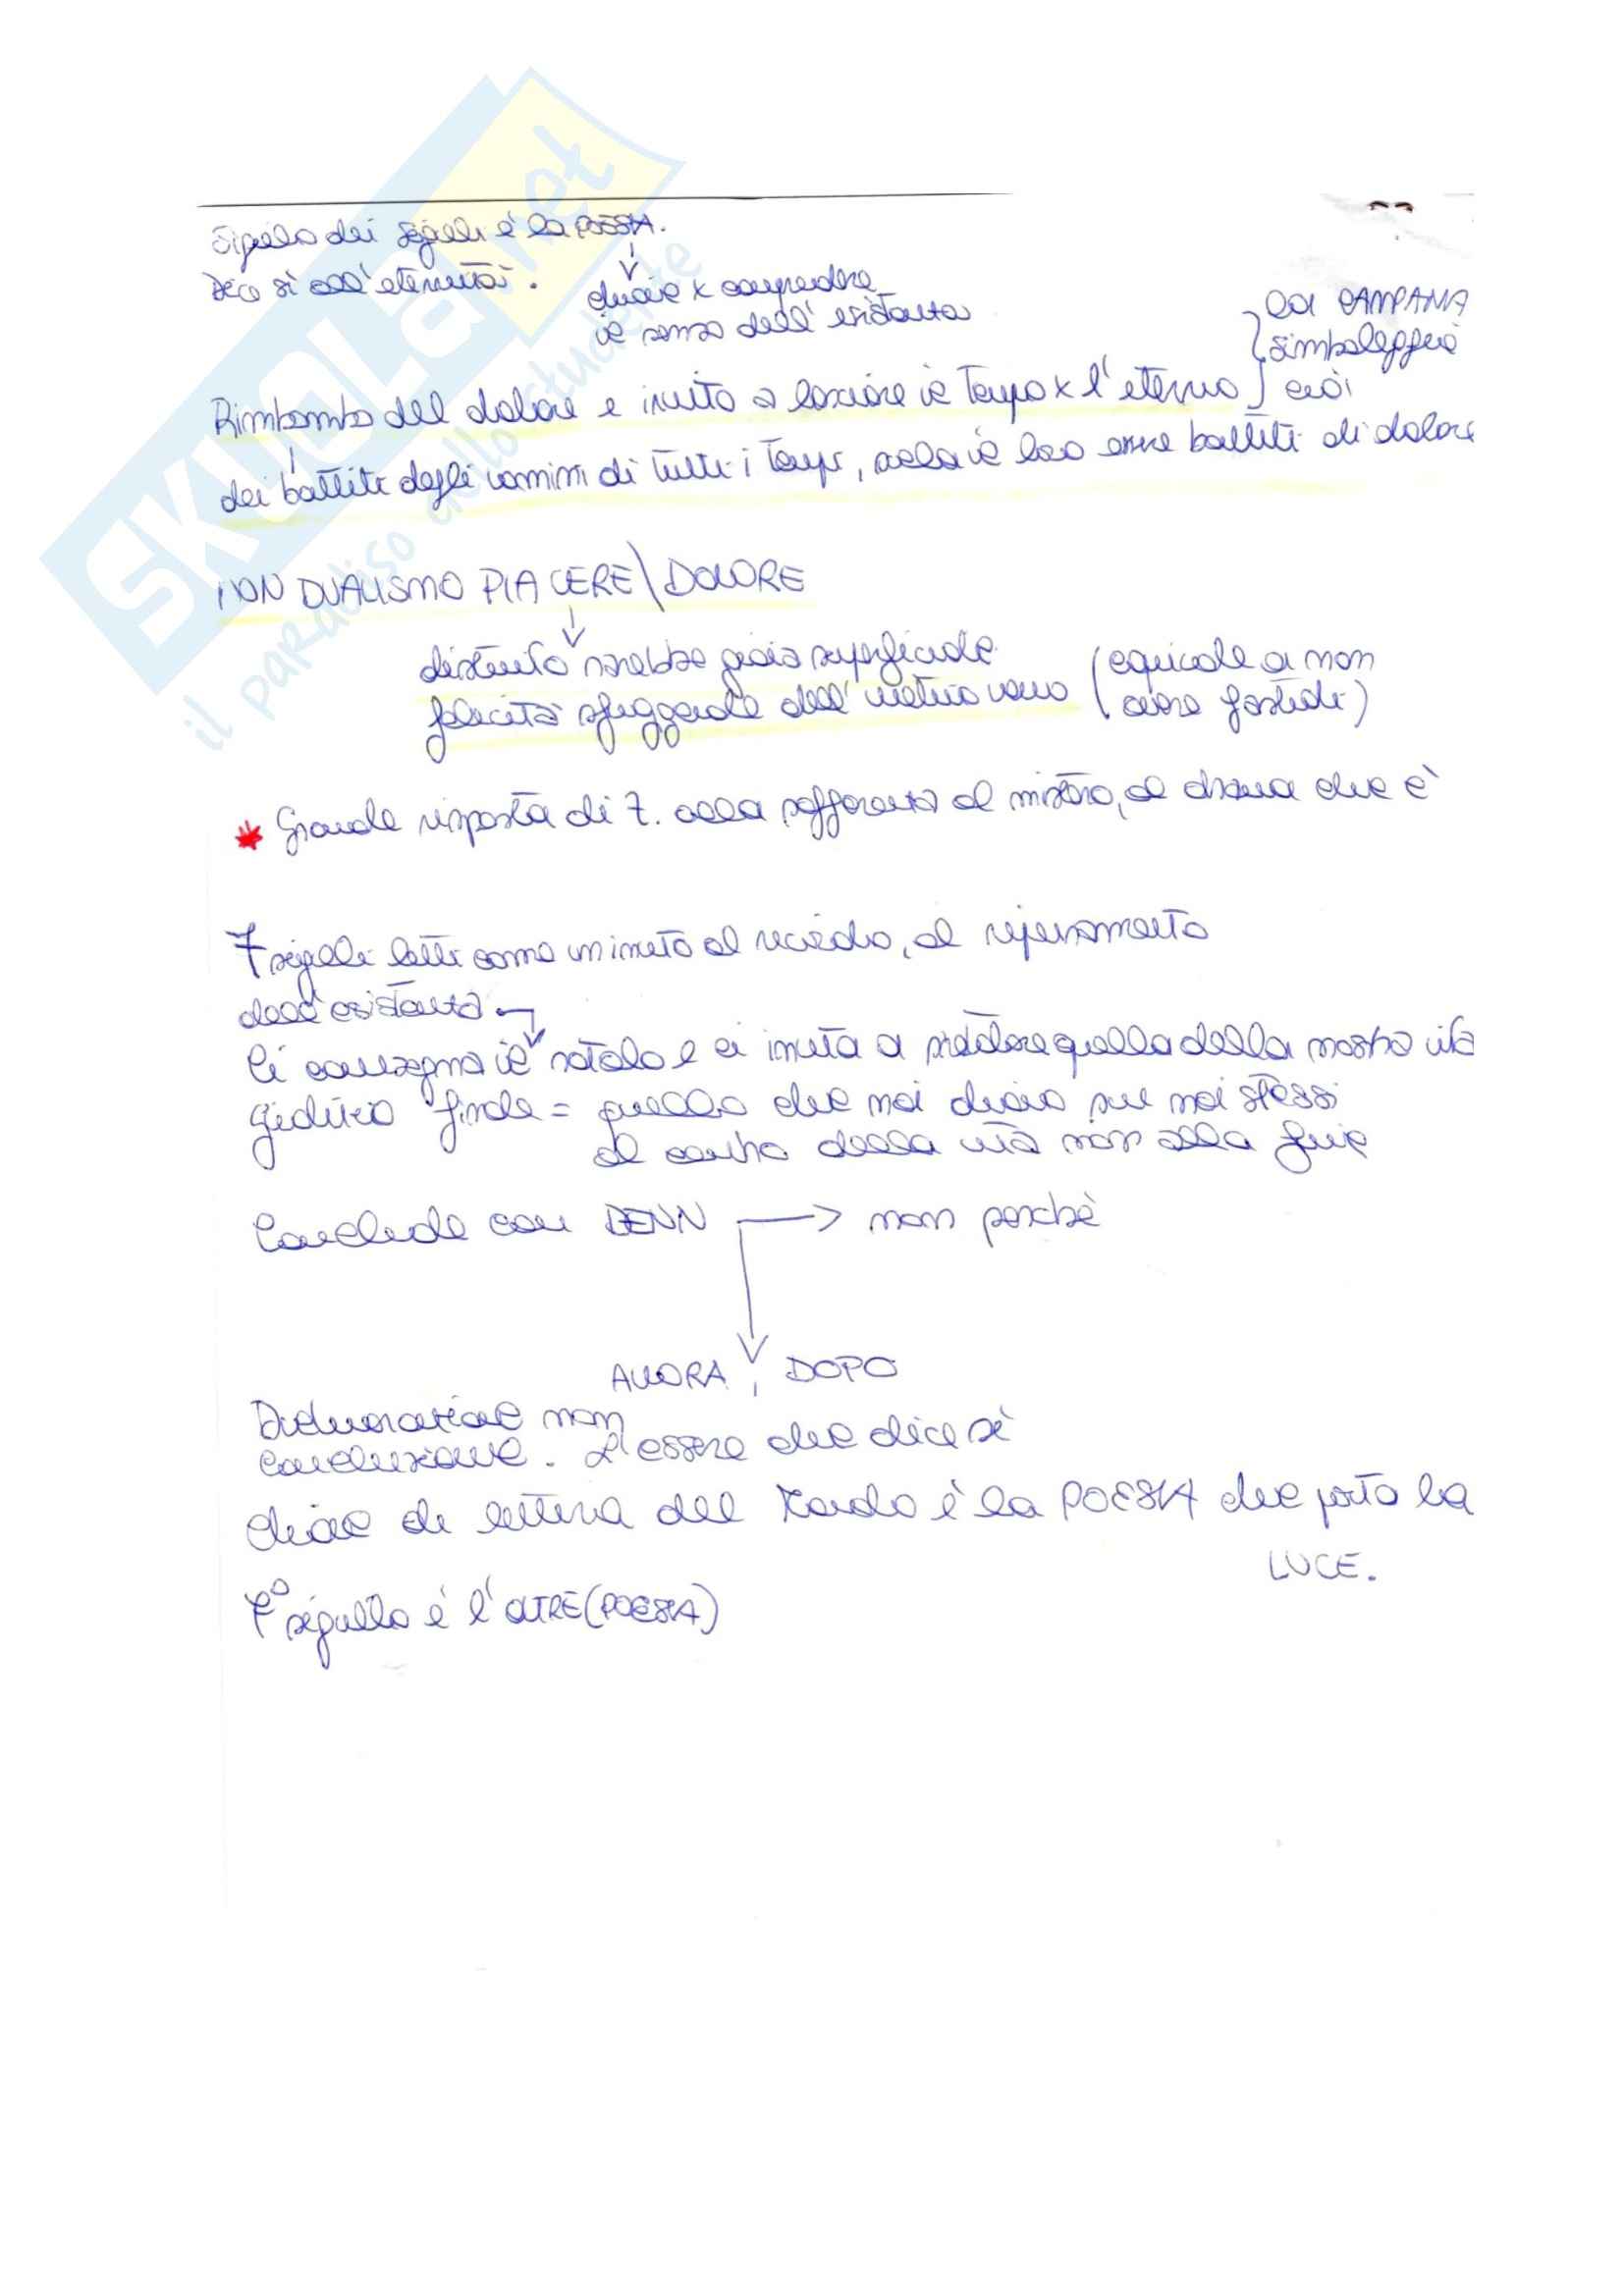 Sigillo dei sigilli è la POESIA.
Dico sì all'eternità.
chiave x comprendere
il senso dell'esistenza
La CAMPANA
simboleggia
Rimbombo del dolore e invito a lasciare il Tempo x l'eterno ciò
dei battiti degli uomini di tutti i Tempi, solo il loro essere battiti di dolore
NON DUALISMO PIACERE\DOLORE
distinto sarebbe gioia superficiale
felicità sfuggente dell' uomo (equivale a non
avere fastidi)
* Grande risposta di Z. alla sofferenza al mistero, al drama che è
7 sigilli letti come un invito al
dell'esistenza
Ci consegna il rotolo e ci invita a quella della nostra vita
giudizio finale = quello che noi diamo su noi stessi
al centro della vita non alla fine
Conclude con DENN → non perchè
ALLORA, DOPO
Dichiarazione non
conclusione. L'essere che dice sì
chiave di lettura del Mondo è la POESIA che porta la
LUCE.
7° sigillo è l'OLTRE (POESIA)
SKUOLA.net
il paradiso dello studente